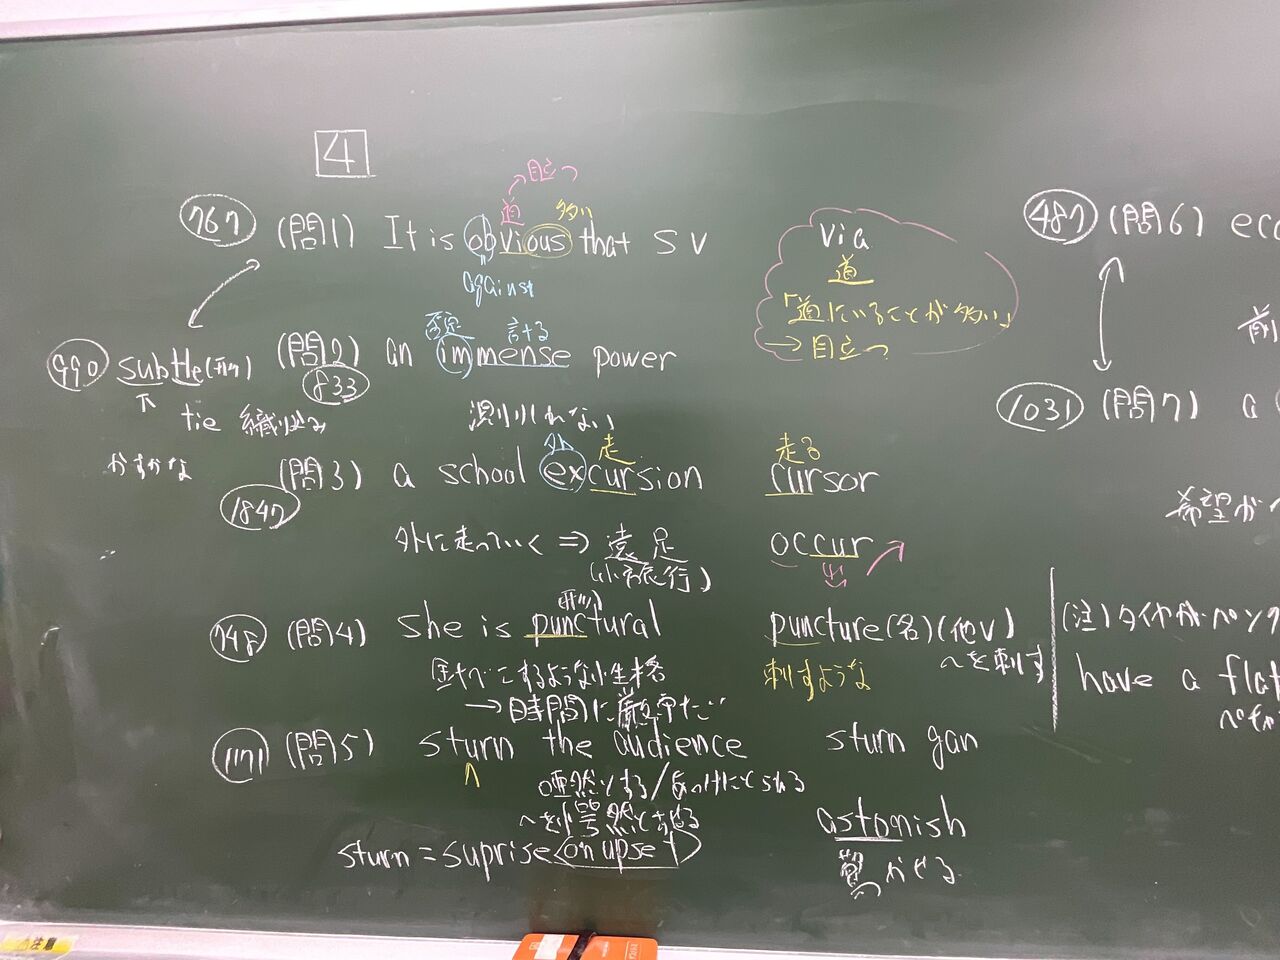 4
目立つ
道 多い
767 (問1) It is obvious that S V
against
via
道
「道にいることが多い」
→目立つ
否定 計する
990 subtle(形) (問2) an immense power
833
tie 織り込む
測りしれない
かすかな
外 走 走る
(問3) a school excursion cursor
1847
外に走っていく ⇒ 遠足
(小旅行)
occur
(形)
748 (問4) she is punctural puncture(名)(他V)
〜を刺す
な性格 刺すような
→時間に
1171 (問5) sturn the audience sturn gan
唖然とする/あっけにとられる
〜を愕然とさせる
sturn = suprise on upset
astonish
驚かせる
487 (問6) eco
前
1031 (問7) a
希望が
(注)タイヤがパンク
have a flat